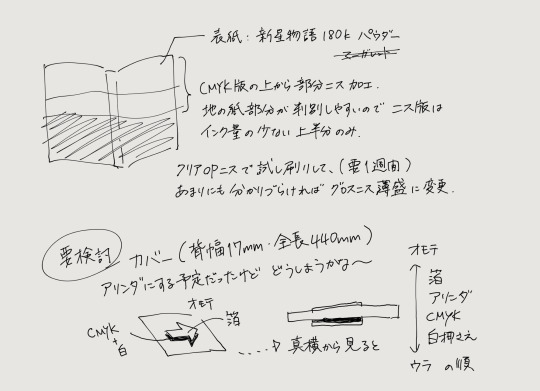 表紙：新星物語 180k パウダー
CMYK版の上から部分ニス加工.
地の紙部分が判別しやすいので ニス版は
インク量の少ない上半分のみ.
クリアOPニスで試し刷りして、(要1週間)
あまりにも分かりづらければ グロスニス薄盛に変更.
要検討
カバー (背幅17mm・全長440mm)
アリンダにする予定だったけど どうしようかな〜
オモテ
箔
CMYK
+
白
真横から見ると
オモテ
箔
アリンダ
CMYK
白押さえ
ウラ の順